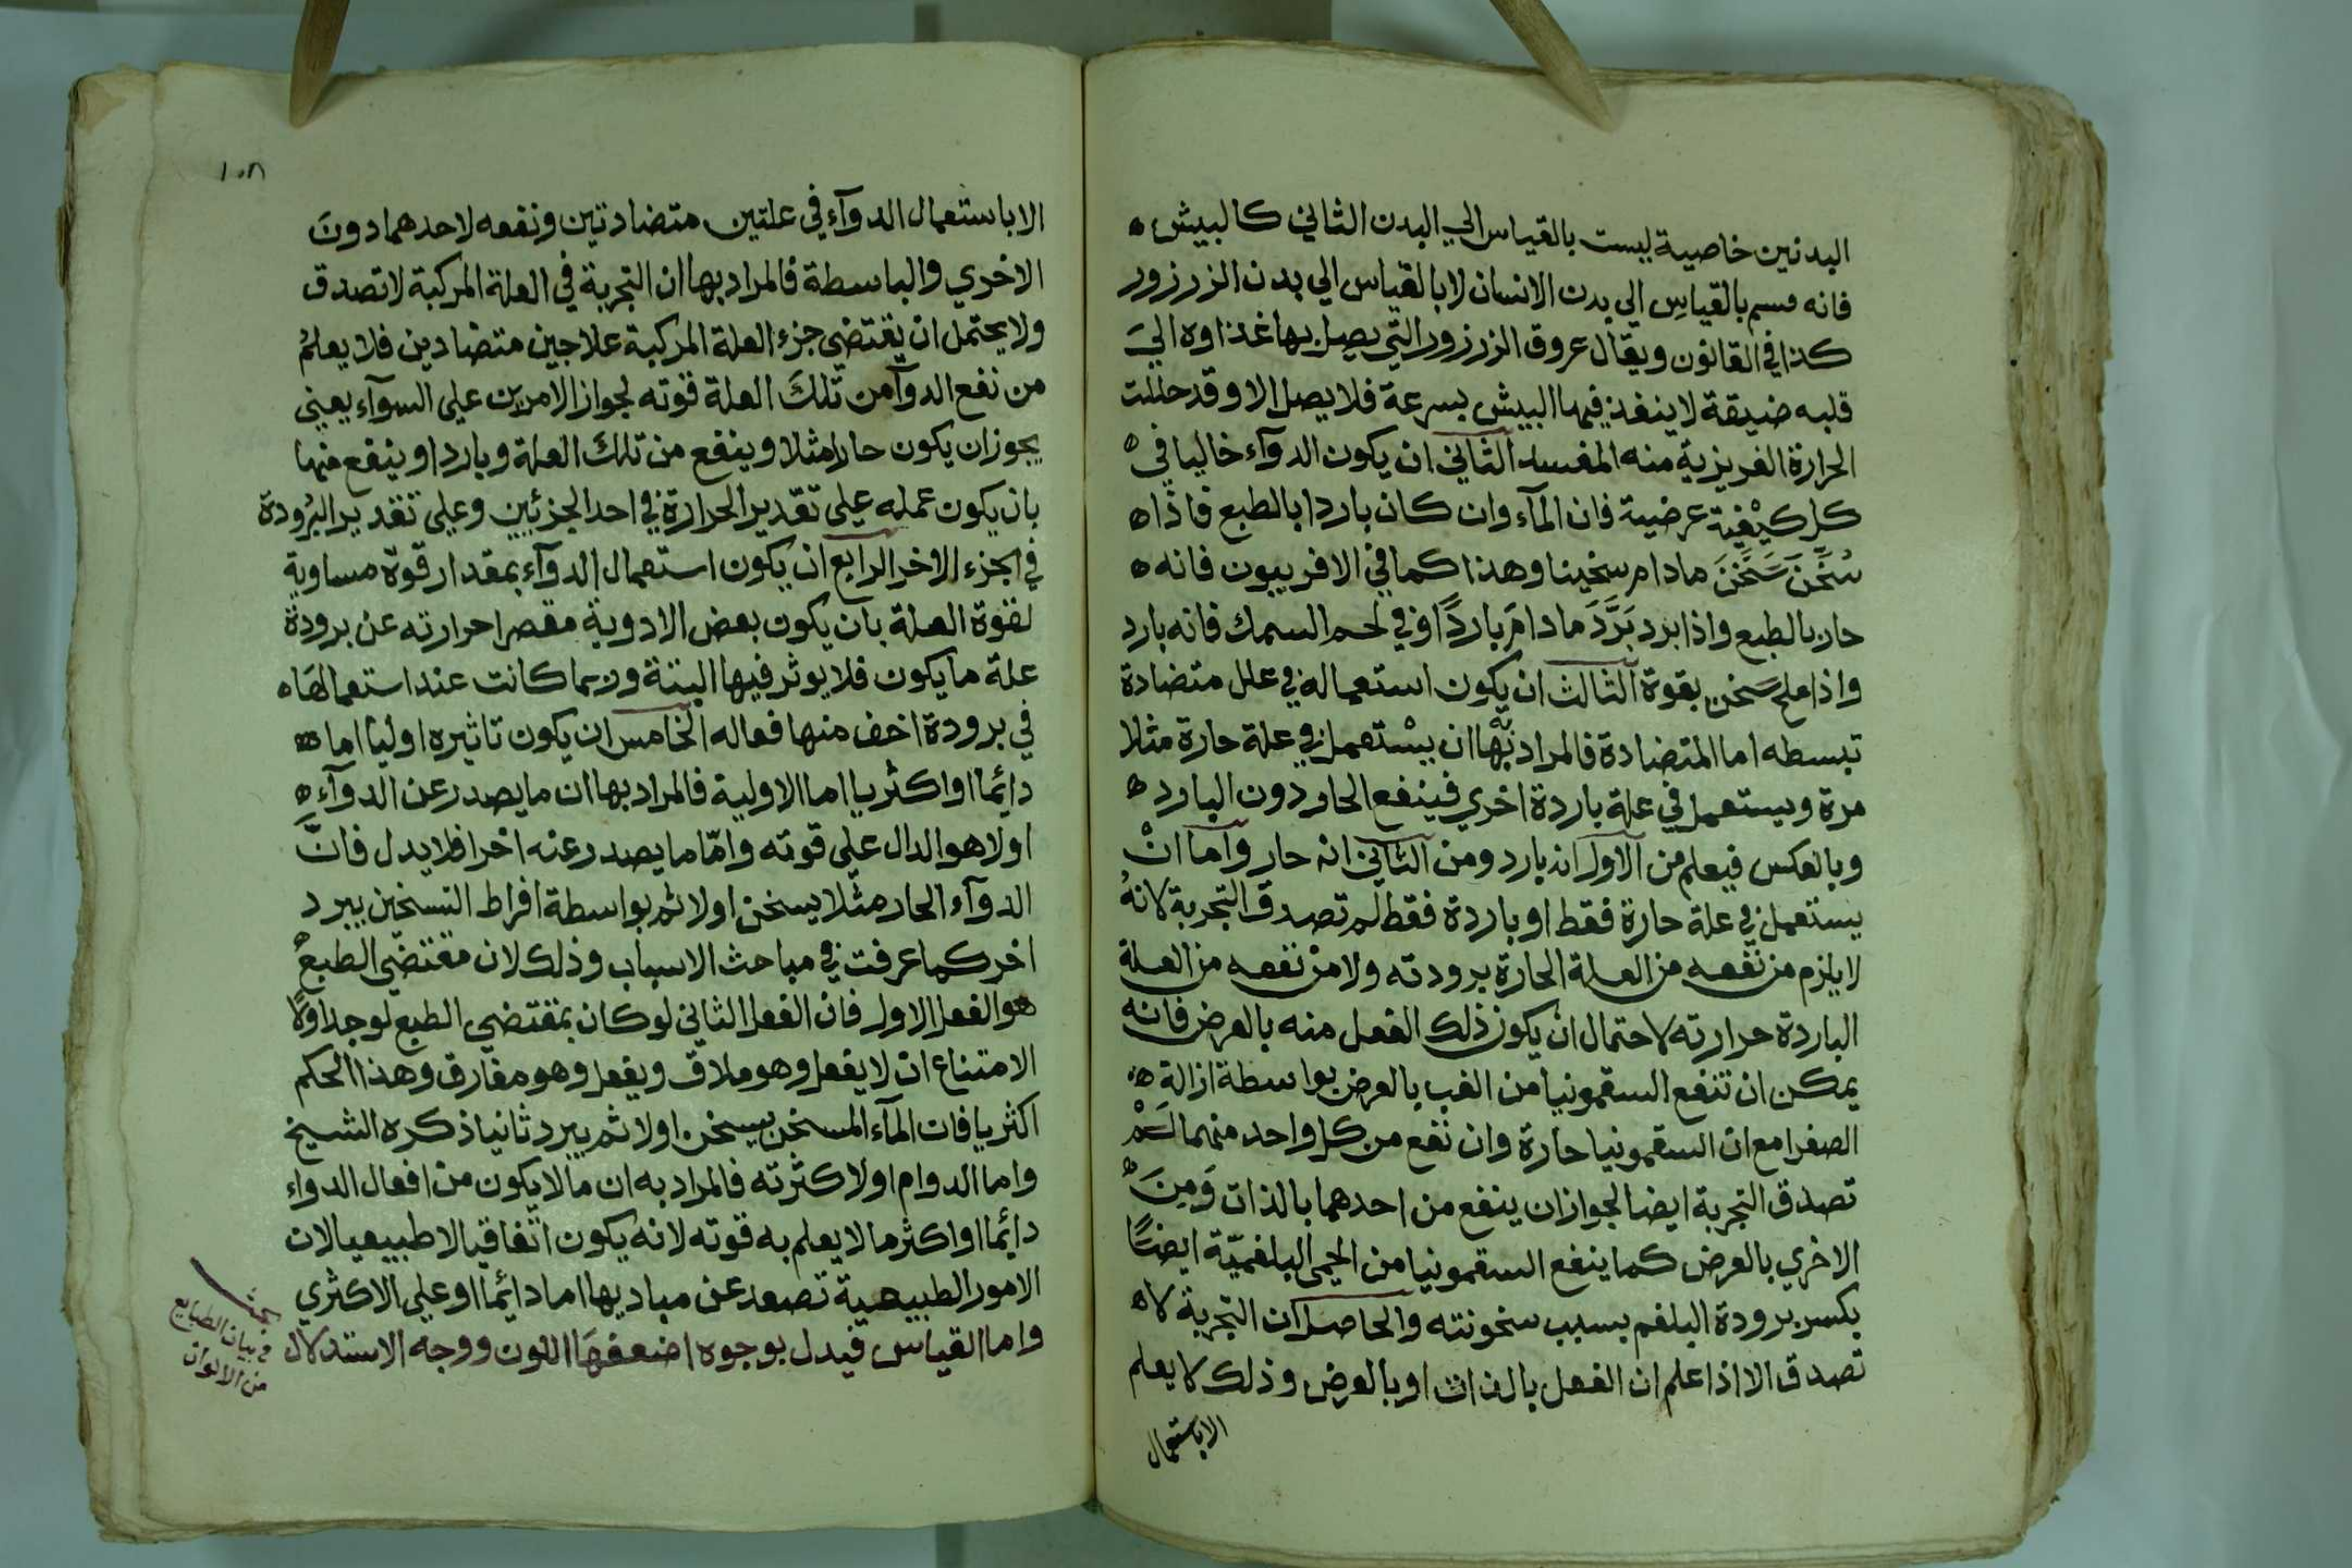 البدنين خاصية ليست بالقياس الي البدن الثاني كالبيش
فانه سم بالقياس الي بدن الانسان لا بالقياس الي بدن الزرزور
كذا في القانون ويقال عروق الزرزور التي يصل بها غذاوه الي
قلبه ضيقة لا ينفذ فيها البيش بسرعة فلا يصل الا وقد حللت
الحرارة الغريزية منه المفسد الثاني ان يكون الدوآء خاليا في
كل كيفية عرضية فان المآء وان كان باردا بالطبع فاذا
سُخِّنَ سَخَّنَ مادام سخينا وهذا كما في الافربيون فانه
حار بالطبع واذا برد بَرَّدَ مادامَ باردًا وفي لحم السمك فانه بارد
واذا ملح سَخن بقوة الثالث ان يكون استعماله في علل متضادة
تبسطه اما المتضادة فالمراد بها ان يستعمل في علة حارة مثلا
مرة ويستعمل في علة باردة اخري فينفع الحار دون البارد
وبالعكس فيعلم من الاول انه بارد ومن الثاني انه حار واما انْ
يستعمل في علة حارة فقط او باردة فقط لم تصدق التجربة لانهُ
لا يلزم من نفعه من العلة الحارة برودته ولا من نفعه من العلة
الباردة حرارته لاحتمال ان يكون ذلك الفعل منه بالعرض فانه
يمكن ان تنفع السقمونيا من الغب بالعرض بواسطة ازالة
الصفرا مع ان السقمونيا حارة وان نفع من كل واحد منهما لَمْ
تصدق التجربة ايضا لجواز ان ينفع من احدهما بالذات وَمِنَ
الاخري بالعرض كما ينفع السقمونيا من الحمى البلغميّة ايضًا
بكسر برودة البلغم بسبب سخونته والحاصل ان التجربة لا
تصدق الا اذا علم ان الفعل بالذات او بالعرض وذلك لا يعلم
الاباستعمال
١٥٨
الا باستعمال الدوآء في علتين متضادتين ونفعه لاحدهما دونَ
الاخري والباسطة فالمراد بها ان التجربة في العلة المركبة لا تصدق
ولا يحتمل ان يقتضي جزء العلة المركبة علاجين متضادين فلا يعلمُ
من نفع الدوآ من تلكَ العلة قوته لجواز الامرين علي السوآء يعني
يجوز ان يكون حارا مثلا وينفع من تلك العلة وباردا وينفع منها
بان يكون عمله علي تقدير الحرارة في احد الجزئيين وعلي تقدير البُرودة
في الجزء الاخر الرابع ان يكون استعمال الدوآء بمقدار قوة مساوية
لقوة العلة بان يكون بعض الادوية مقصرا حرارته عن برودة
علة ما يكون فلا يوثر فيها البتة وربما كانت عند استعمالها
في برودة اخف منها فعاله الخامس ان يكون تاثيره اوليا اما
دائما او اكثريا اما الاولية فالمراد بها ان ما يصدر عن الدوآء
اولا هو الدال علي قوته وامّا ما يصدر عنه اخرا فلا يدل فانَّ
الدوآء الحار مثلا يسخن اولا ثم بواسطة افراط التسخين يبرد
اخر كما عرفت في مباحث الاسباب وذلك لان مقتضي الطبع
هو الفعل الاول فان الفعل الثاني لو كان بمقتضي الطبع لوجد اولا
الامتناع ان لا يفعل وهو ملاق ويفعل وهو مفارق وهذا الحكم
اكثريا فان المآء المسخن يسخن اولا ثم يبرد ثانيا ذكره الشيخ
واما الدوام اولا كثرته فالمراد به ان ما لا يكون من افعال الدواء
دايما او اكثر ما لا يعلم به قوته لانه يكون اتفاقيا لا طبيعيا لان
الامور الطبيعية تصعد عن مباديها اما دائما او علي الاكثري
واما القياس فيدل بوجوه اضعفها اللون ووجه الاستدلال
بحث
في بيان الطبايع
من الالوان